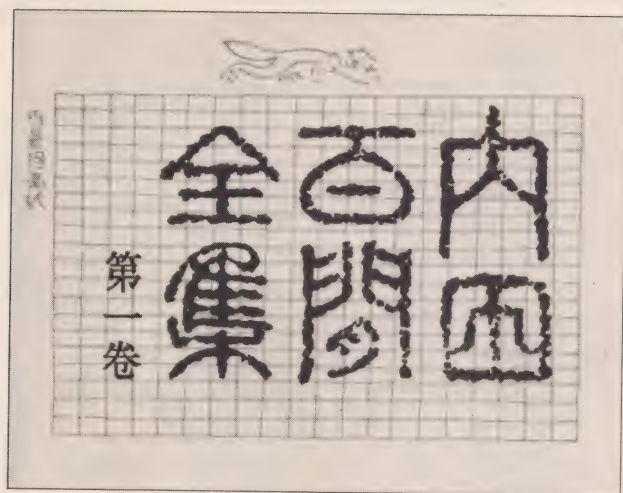 内田
百閒
全集
第一卷